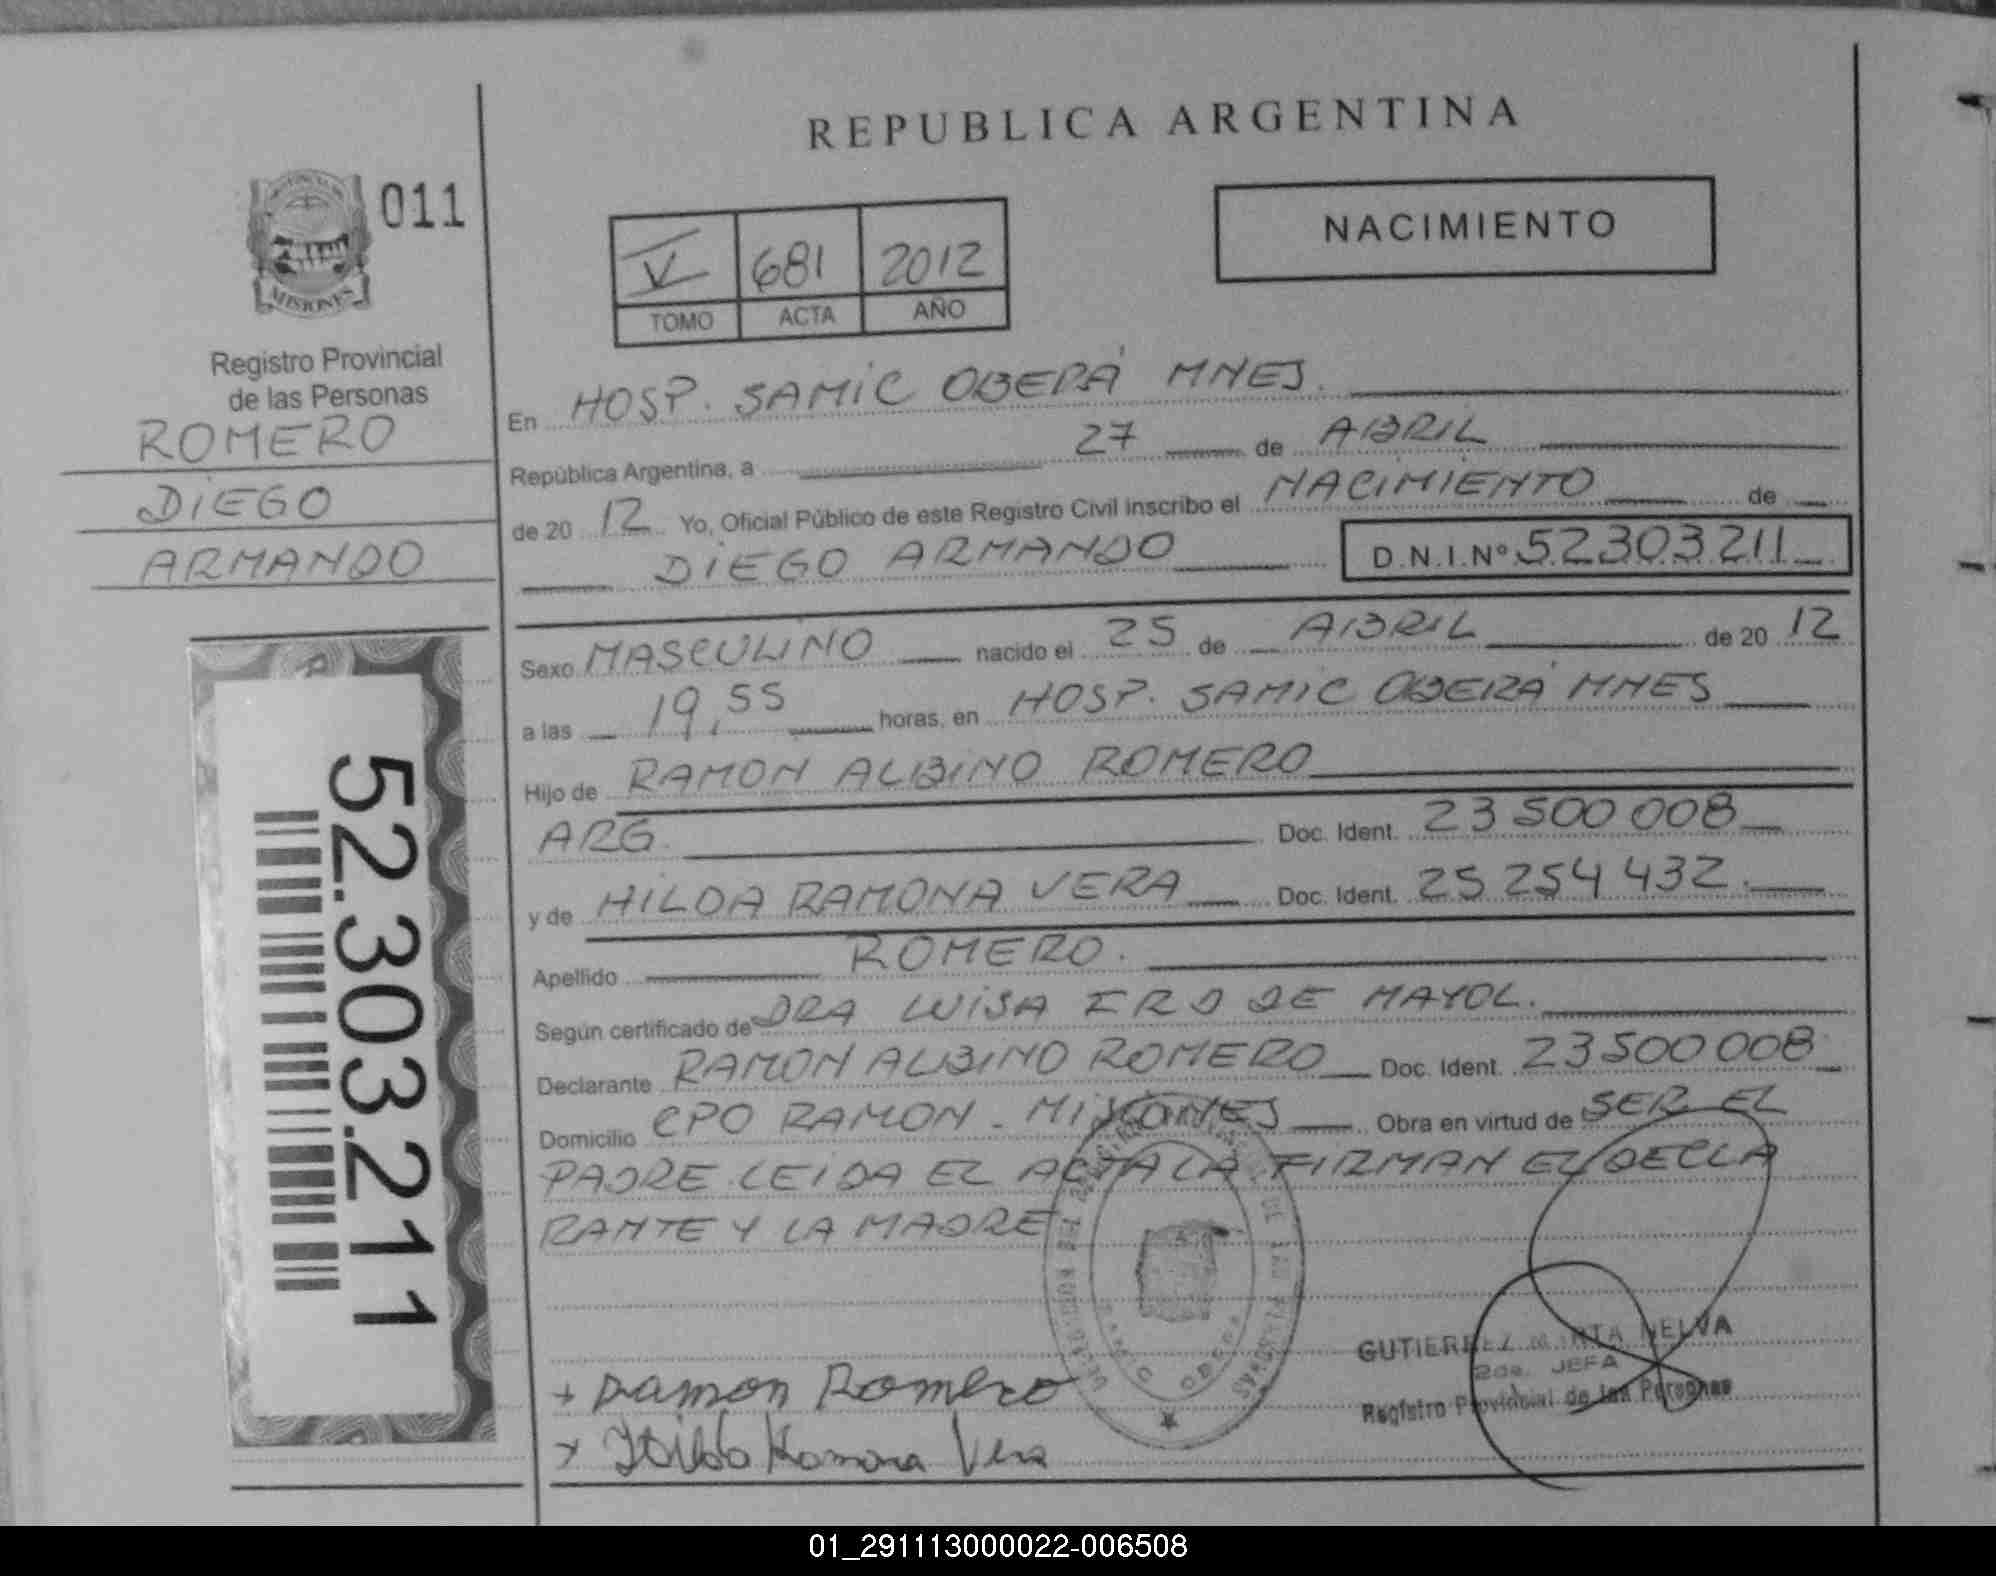 REPUBLICA ARGENTINA
011
MISIONES
Registro Provincial
de las Personas
ROMERO
DIEGO
ARMANDO
52.303.211
NACIMIENTO
V 681 2012
TOMO ACTA AÑO
En HOSP. SAMIC OBERÁ MNES.
República Argentina, a 27 de ABRIL
de 20 12 Yo, Oficial Público de este Registro Civil inscribo el NACIMIENTO de
DIEGO ARMANDO D.N.I.Nº 52303211
Sexo MASCULINO nacido el 25 de ABRIL de 20 12
a las 19,55 horas, en HOSP. SAMIC OBERÁ MNES
Hijo de RAMON ALBINO ROMERO
ARG. Doc. Ident. 23500008
y de HILDA RAMONA VERA Doc. Ident. 25254432.
Apellido ROMERO.
Según certificado de DRA LUISA DE MAYOL.
Declarante RAMON ALBINO ROMERO Doc. Ident. 23500008
Domicilio CPO RAMON - MISIONES Obra en virtud de SER EL
PADRE LEIDA EL ACTA LA FIRMAN EL DECLA
RANTE Y LA MADRE
GUTIERREZ MIRTA NELVA
2da. JEFA
Registro Provincial de las Personas
+ Ramon Romero
x Hilda Ramona Vera
01_291113000022-006508